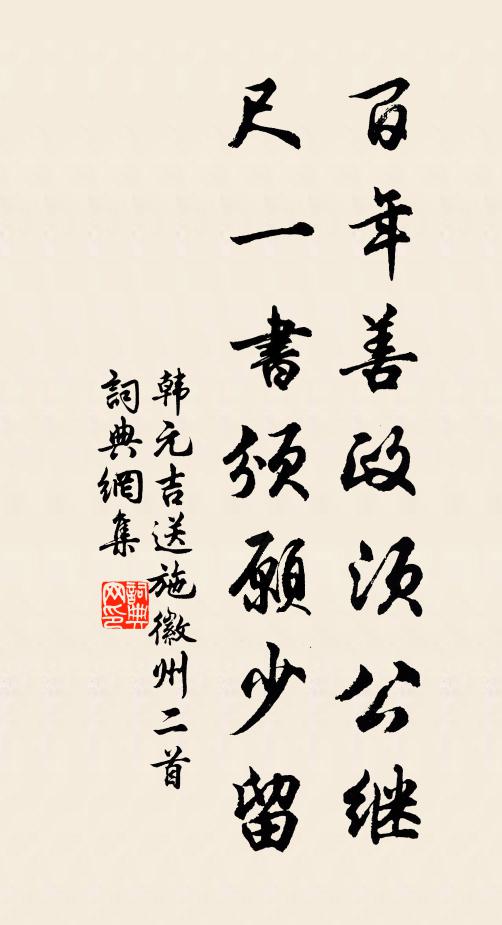 百年善政须公继
尺一書颁愿少留
韩元吉送施徽州二首
詞典網集
詞典网印